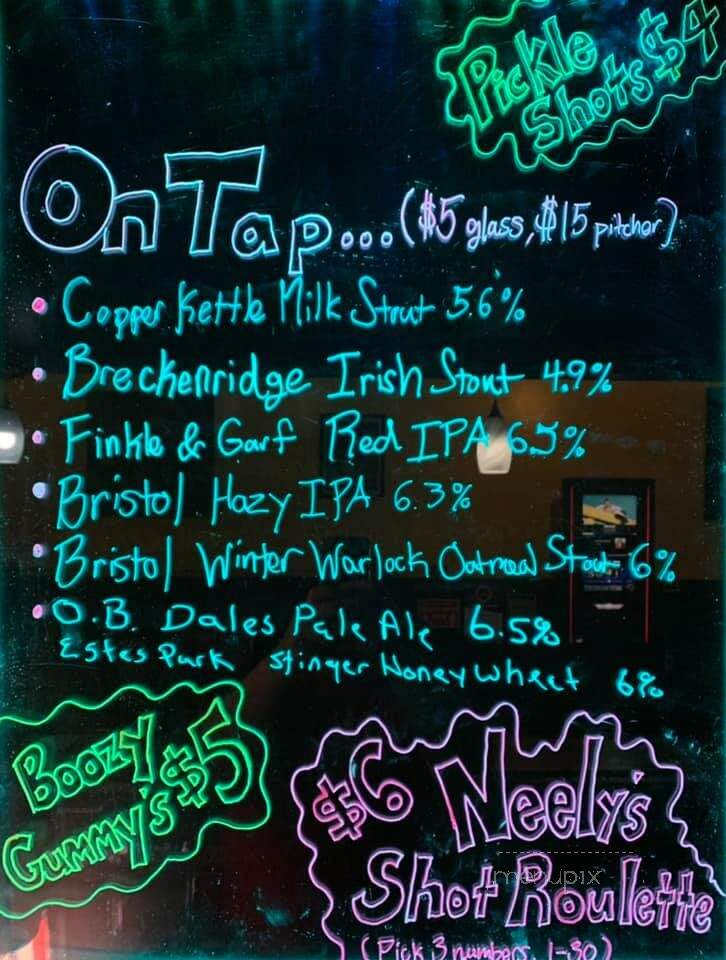 Pickle
Shots $4
On Tap... ($5 glass, $15 pitcher)
Copper Kettle Milk Stout 5.6%
Breckenridge Irish Stout 4.9%
Finkle & Garf Red IPA 6.5%
Bristol Hazy IPA 6.3%
Bristol Winter Warlock Oatmeal Stout 6%
O.B. Dales Pale Ale 6.5%
Estes Park Stinger Honey Wheat 6%
Boozy
Gummy's $5
$6 Neely's
Shot Roulette
(Pick 3 numbers, 1-30)
menupix